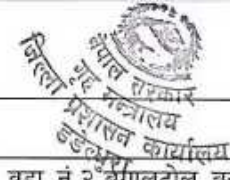 नेपाल सरकार
गृह मन्त्रालय
जिल्ला प्रशासन कार्यालय
डडेल्धुरा
वडा नं २